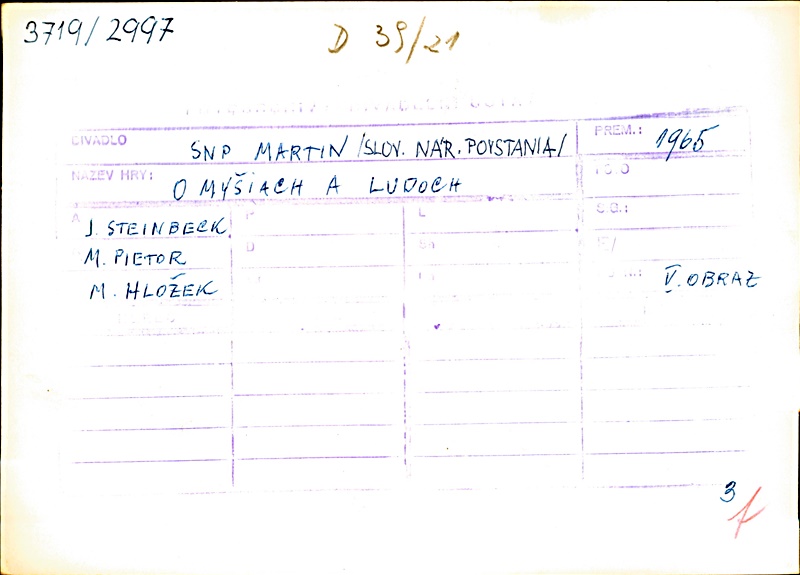 3719/2997
D 39/21
DIVADLO SNP MARTIN /SLOV. NÁR. POVSTANIA/ PREM.: 1965
NÁZEV HRY: O MYŠIACH A ĽUDOCH
A J. STEINBECK
S.B.:
M. PIETOR
M. HLOŽEK V. OBRAZ
3